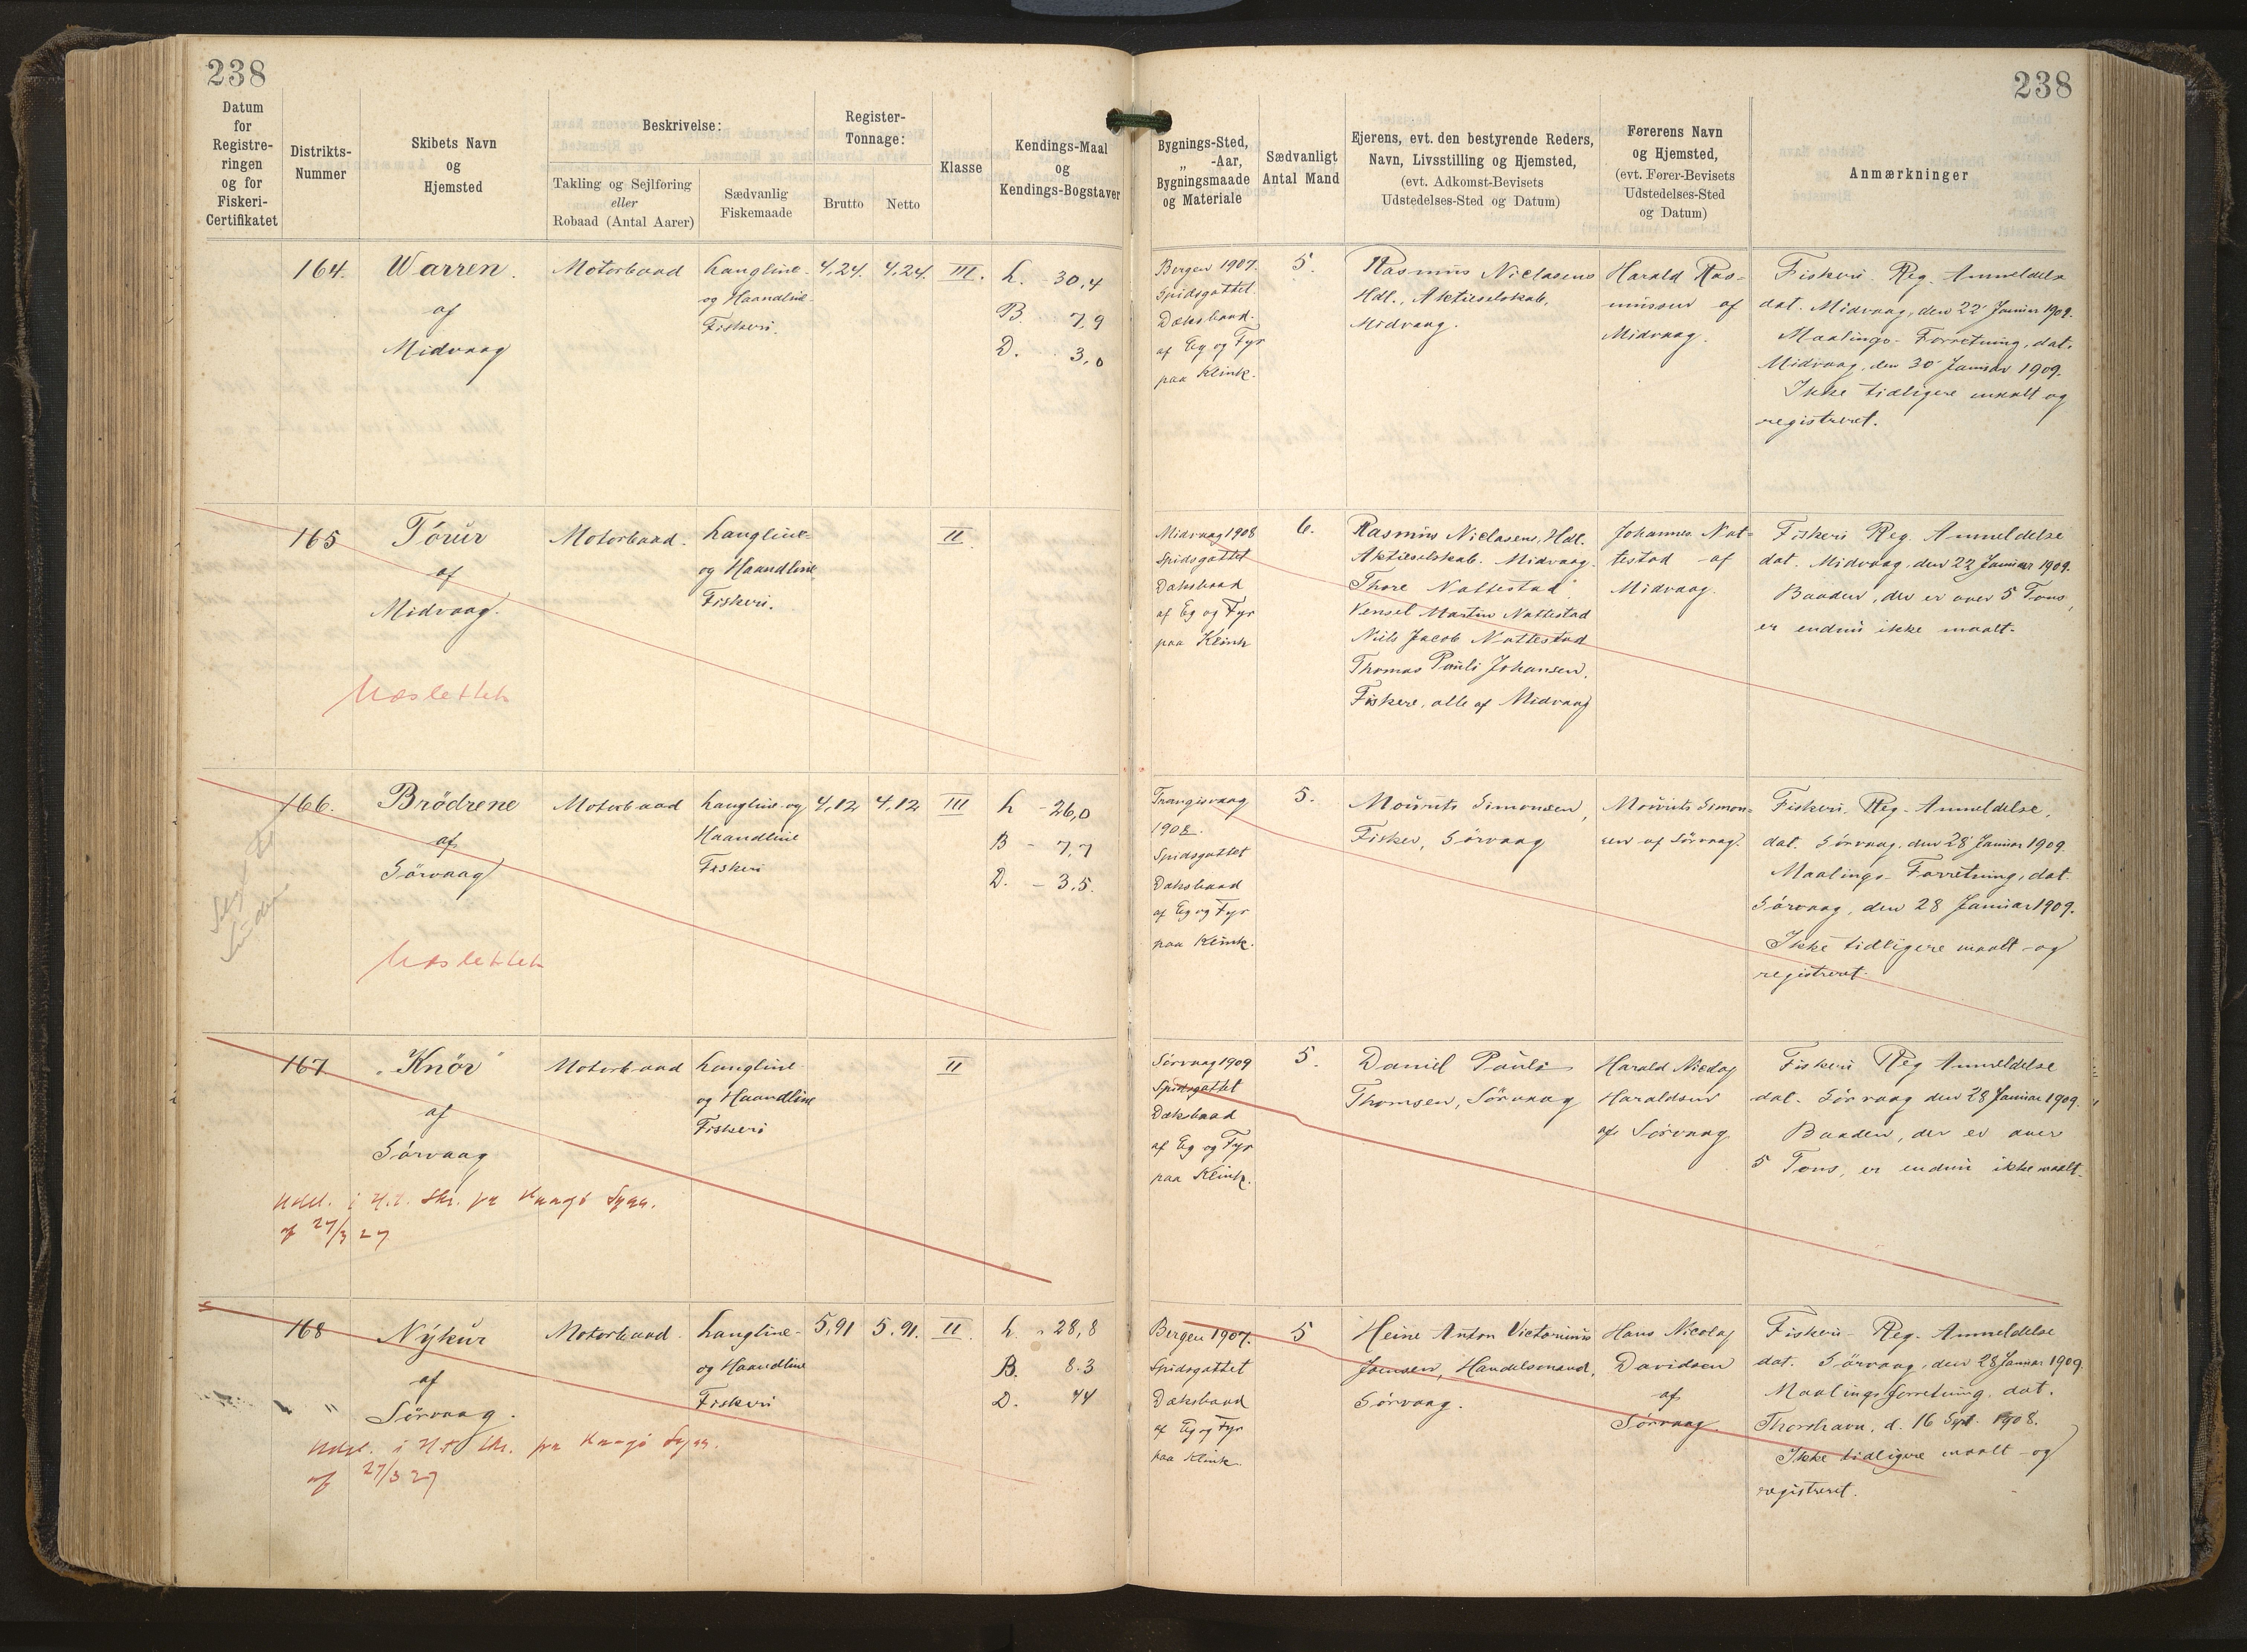 238
238
Datum for Registreringen og for Fiskeri-Certifikatet
Distrikts-Nummer
Skibets Navn og Hjemsted
Beskrivelse:
Takling og Sejlføring eller Robaad (Antal Aarer)
Sædvanlig Fiskemaade
Register-Tonnage:
Brutto
Netto
Klasse
Kendings-Maal og Kendings-Bogstaver
Bygnings-Sted, „ -Aar, Bygningsmaade og Materiale
Sædvanligt Antal Mand
Ejerens, evt. den bestyrende Reders, Navn, Livsstilling og Hjemsted, (evt. Adkomst-Bevisets Udstedelses-Sted og Datum)
Førerens Navn og Hjemsted, (evt. Fører-Bevisets Udstedelses-Sted og Datum)
Anmærkninger
164.
Warren.
af
Midvaag
Motorbaad
Langline-
og Haandline-
Fiskeri.
4,24.
4,24.
III.
L. 30,4
B. 7,9
D. 3,0
Bergen 1907.
Spidsgattet
Dæksbaad.
af Eg og Fyr
paa Klink.
5.
Rasmus Niclasens
Hdl., Aktieselskab,
Midvaag.
Harald Ras-
mussen af
Midvaag.
Fiskeri Reg. Anmeldelse
dat. Midvaag, den 22 Januar 1909.
Maalings-Forretning, dat.
Midvaag, den 30 Januar 1909.
Ikke tidligere maalt og
registreret.
165
Tórur
af
Midvaag.
Udslettet
Motorbaad.
Langline-
og Haandline
Fiskeri.
II.
Midvaag 1908
Spidsgattet
Dæksbaad
af Eg og Fyr
paa Klink
6.
Rasmus Niclasens, Hdl.
Aktieselskab. Midvaag.
Thore Nattestad
Vensel Martin Nattestad
Niels Jacob Nattestad
Thomas Pauli Johansen,
Fiskere, alle af Midvaag
Johannes Nat-
testad af
Midvaag.
Fiskeri Reg Anmeldelse
dat. Midvaag, den 22 Januar 1909.
Baaden, der er over 5 Tons,
er endnu ikke maalt.
166.
Brödrene
af
Sörvaag
Udslettet
Motorbaad
Langline-og
Haandline
Fiskeri
4,12
4,12
III
L - 26,0
B - 7,7
D. - 3,5.
Trangisvaag
1908.
Spidsgattet
Dæksbaad
af Eg og Fyr
paa Klink.
5.
Mourits Simonsen,
Fisker, Sörvaag
Mourits Simon-
sen af Sörvaag.
Fiskeri. Reg. Anmeldelse,
dat. Sörvaag, den 28 Januar 1909
Maalings-Forretning, dat.
Sörvaag, den 28 Januar 1909.
Ikke tidligere maalt og
registreret.
167
„Knör"
af
Sörvaag
Udsl. i H.t. Skr. fra Vaagö Syss.
af 27/3 27
Motorbaad
Langline-
og Haandline
Fiskeri
II.
Sörvaag 1909
Spidsgattet
Dæksbaad
af Eg og Fyr
paa Klink.
5.
Daniel Pauli
Thomsen, Sörvaag
Harald Nicolaj
Haraldsen
af Sörvaag
Fiskeri Reg Anmeldelse
dat. Sörvaag den 28 Januar 1909.
Baaden, der er over
5 Tons, er endnu ikke maalt.
168
Nýkur
af
Sörvaag.
Udsl. i H.t. Skr. fra Vaagö Syss.
af 27/3 27
Motorbaad.
Langline-
og Haandline
Fiskeri
5,91
5,91.
II.
L. 28,8
B. 8.3
D. 44
Bergen 1907.
Spidsgattet
Dæksbaad
af Eg og Fyr
paa Klink.
5
Heine Anton Victorinus
Joensen, Handelsmand,
Sörvaag.
Hans Nicolaj
Davidsen
af
Sörvaag.
Fiskeri-Reg. Anmeldelse
dat. Sörvaag, den 28 Januar 1909.
Maalingsforretning, dat.
Thorshavn, d. 16 Sept. 1908.
Ikke tidligere maalt og
registreret.